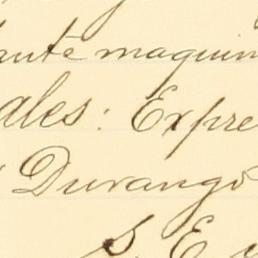 ante maquin
ales: Expre
Durango
S. E. y